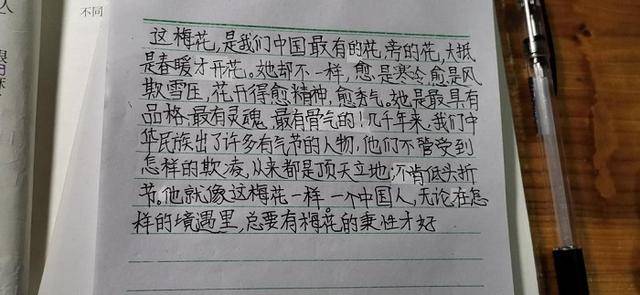 不同
这梅花,是我们中国最有的花,旁的花,大抵
是春暖才开花。她却不一样,愈是寒冷,愈是风
欺雪压,花开得愈精神,愈秀气。她是最具有
品格、最有灵魂、最有骨气的!几千年来,我们中
华民族出了许多有气节的人物,他们不管受到
怎样的欺凌,从来都是顶天立地,不肯低头折
节。他就像这梅花一样。一个中国人,无论在怎
样的境遇里,总要有梅花的秉性才好